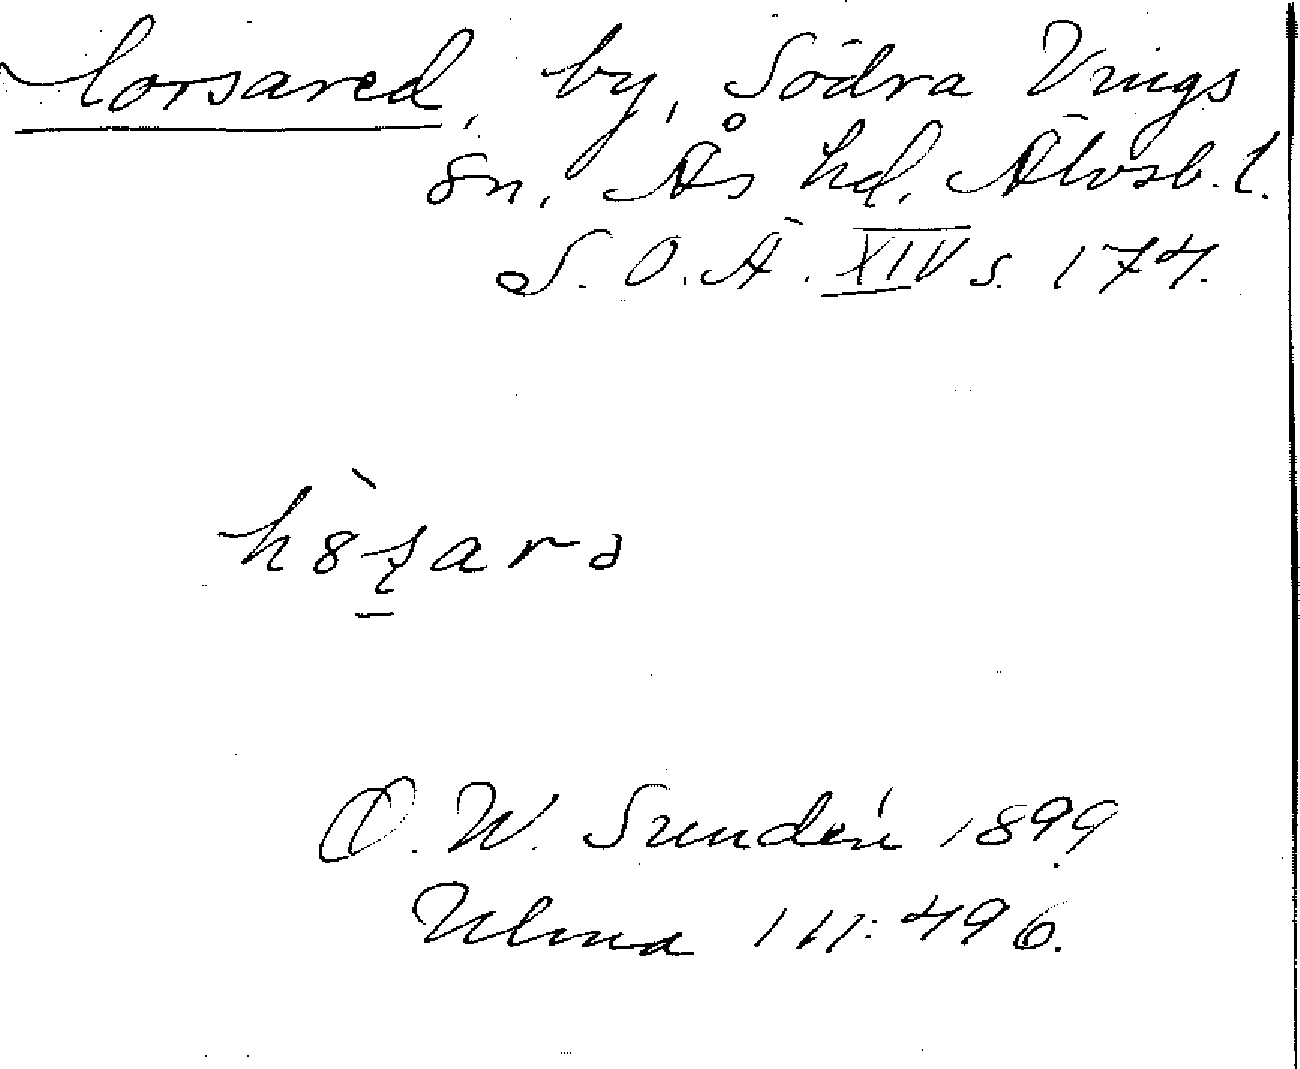 Horsared, by, Södra Vings
sn. Ås hd. Älvsb. l.
S. O. Ä. XIV s. 174.
D. W. Sundén 1899
Ulma 111:496.